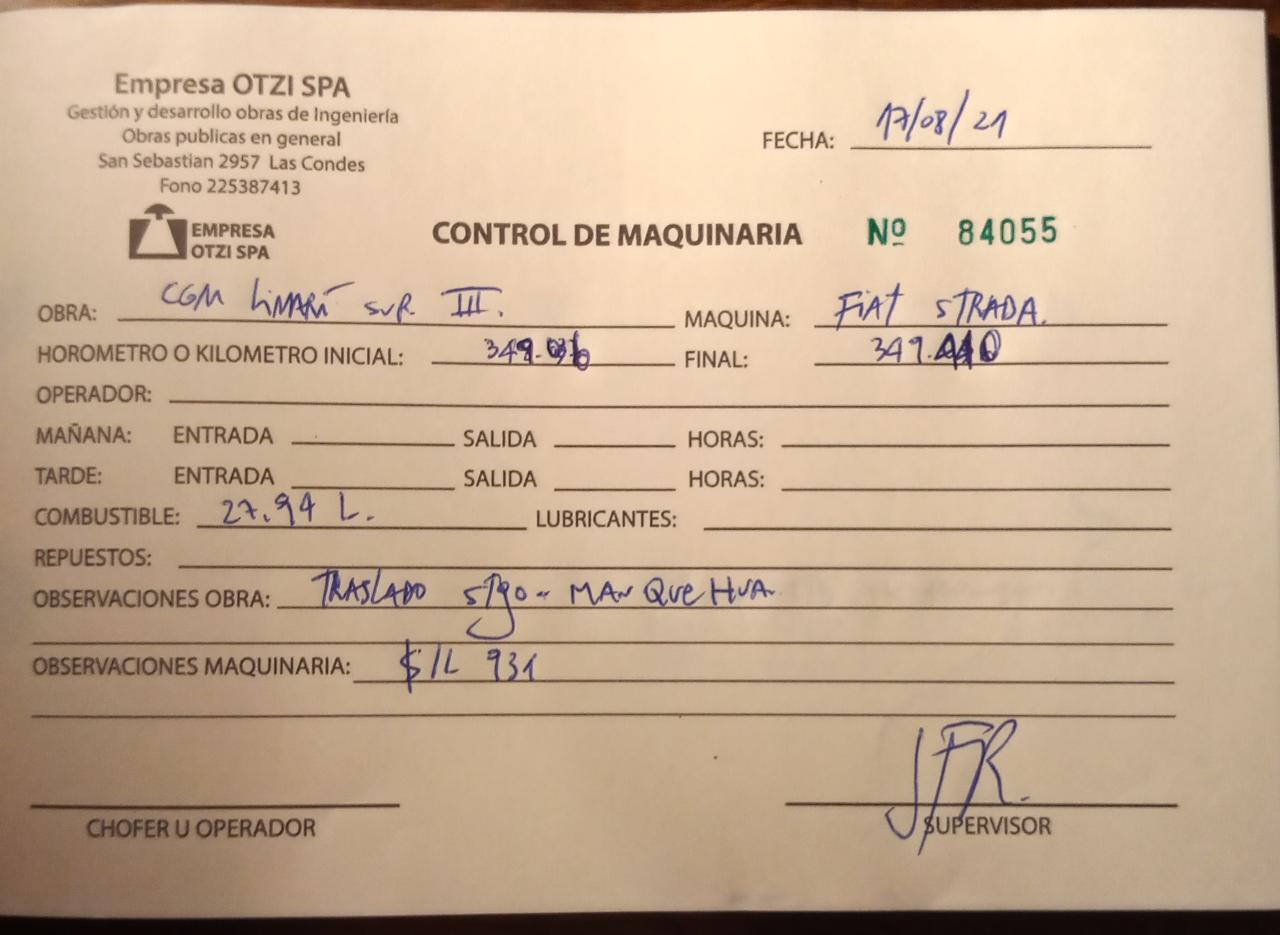 Empresa OTZI SPA
Gestión y desarrollo obras de Ingeniería
Obras publicas en general
San Sebastian 2957 Las Condes
Fono 225387413
FECHA: 17/08/21
EMPRESA
OTZI SPA
CONTROL DE MAQUINARIA Nº 84055
OBRA: CGM LiMARÍ SUR III. MAQUINA: FiAT STRADA.
HOROMETRO O KILOMETRO INICIAL: FINAL:
OPERADOR:
MAÑANA: ENTRADA SALIDA HORAS:
TARDE: ENTRADA SALIDA HORAS:
COMBUSTIBLE: 27.94 L. LUBRICANTES:
REPUESTOS:
OBSERVACIONES OBRA: TRASLADO STgo - MANQUEHUA
OBSERVACIONES MAQUINARIA: $/L 931
JFR.
CHOFER U OPERADOR SUPERVISOR